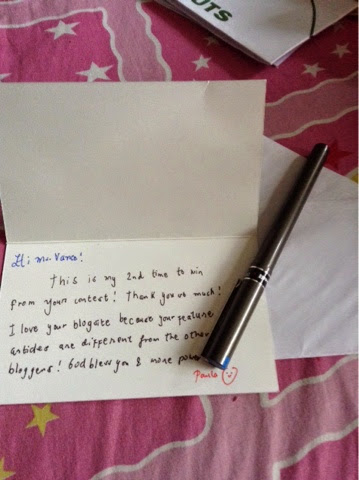 UTS
Hi Ms. Vance!
This is my 2nd time to win
from your contest! Thank you so much!
I love your blogsite because your feature
articles are different from the other
bloggers! God bless you & more
Paula